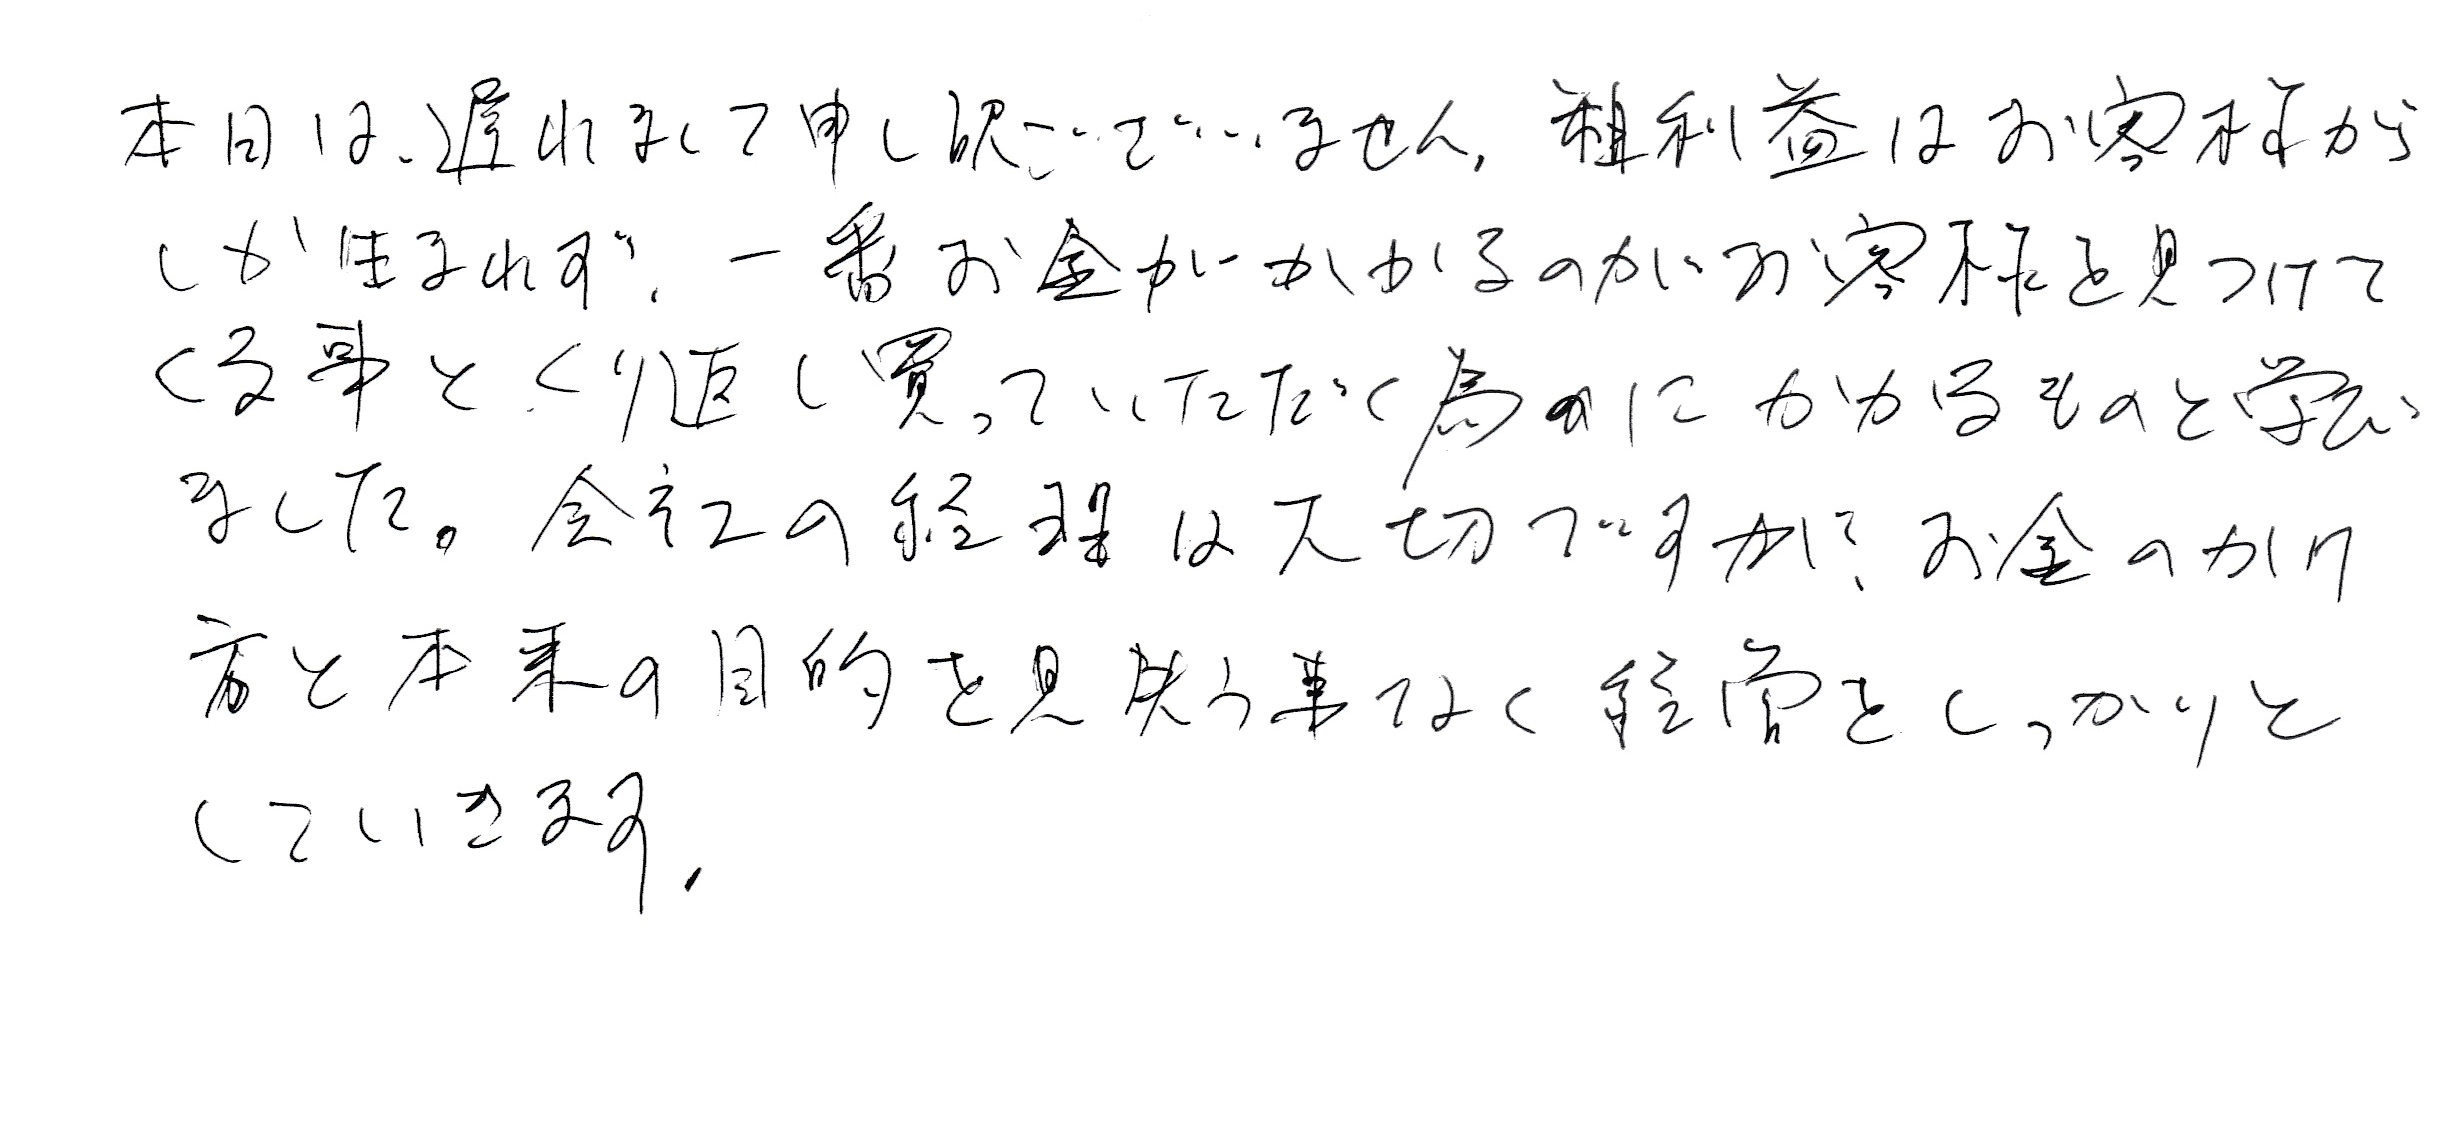 本日は、遅れまして申し訳ございません。粗利益はお客様から
しか生まれず、一番お金がかかるのがお客様を見つけて
くる事と、くり返し買っていただく為のにかかるものと学び
ました。会社の経理は大切ですが、お金のかけ
方と本来の目的を見失う事なく経営をしっかりと
していきます。